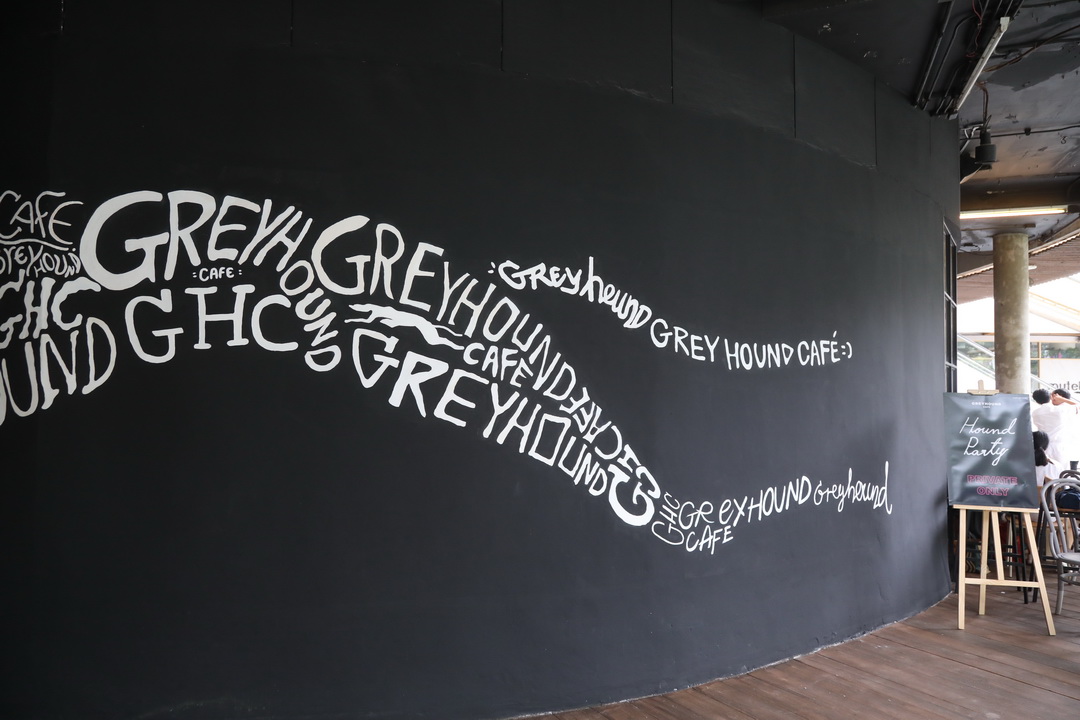 CAFE
GREYHOUND
GHC
OUND
GREYHOUND
:CAFE:
GHC
GREYHOUND
CAFE
GREYHOUND
:GREyhound GREY HOUND CAFÉ:)
GHC
GREYHOUND Greyhound
CAFE
GREYHOUND
Hound
Party
PRIVATE
ONLY